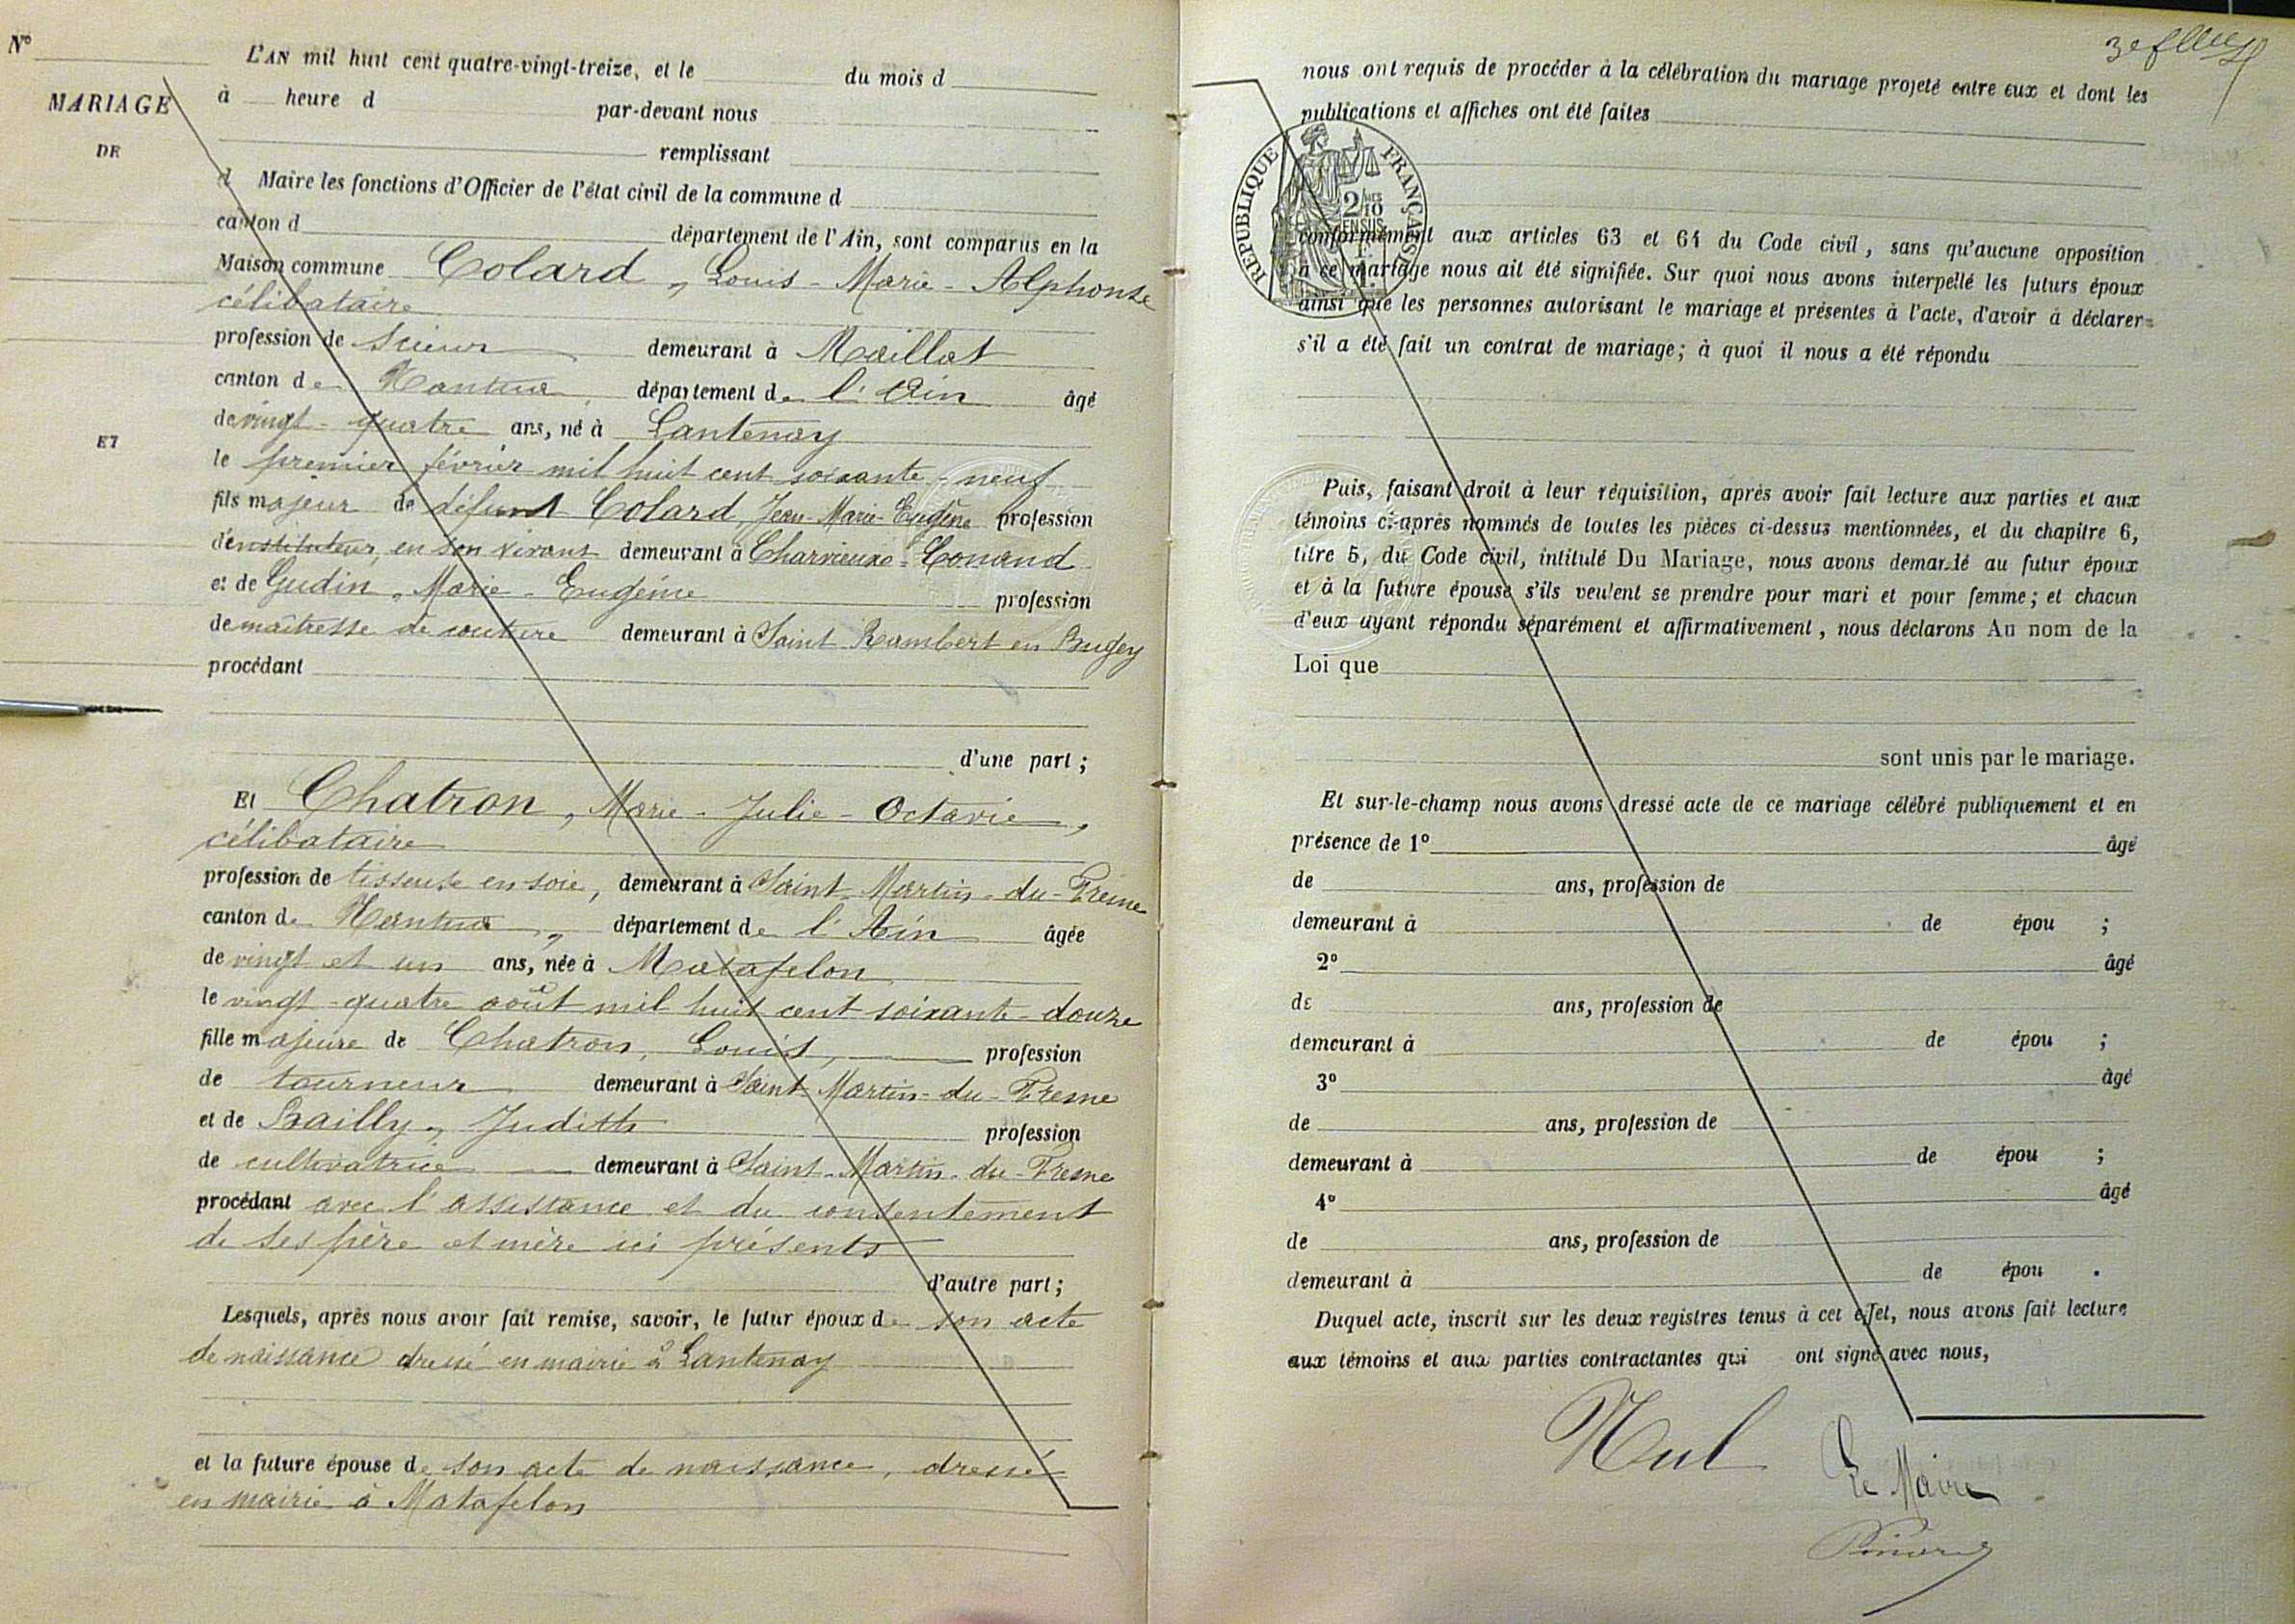 N°
L'AN mil huit cent quatre-vingt-treize, et le du mois d
MARIAGE
à heure d par-devant nous
DE
remplissant
d Maire les fonctions d'Officier de l'état civil de la commune d
canton d département de l'Ain, sont comparus en la
Maison commune Colard, Louis-Marie-Alphonse
célibataire
profession de scieur demeurant à Maillat
canton de Nantua département de l'Ain âgé
de vingt-quatre ans, né à Lantenay
ET
le premier février mil huit cent soixante-neuf
fils majeur de défunt Colard, Jean-Marie-Eugène profession
d'instituteur, en son vivant demeurant à Charvieux-Conand
et de Gudin, Marie-Eugénie profession
de maîtresse de couture demeurant à Saint-Rambert en Bugey
procédant
d'une part;
Et Chatron, Marie-Julie-Octavie,
célibataire
profession de tisseuse en soie, demeurant à Saint-Martin-du-Fresne
canton de Nantua, département de l'Ain âgée
de vingt et un ans, née à Matafelon
le vingt-quatre août mil huit cent soixante-douze
fille majeure de Chatron, Louis, profession
de tourneur demeurant à Saint-Martin-du-Fresne
et de Bailly, Judith profession
de cultivatrice demeurant à Saint-Martin-du-Fresne
procédant avec l'assistance et du consentement
de ses père et mère ici présents
d'autre part;
Lesquels, après nous avoir fait remise, savoir, le futur époux de son acte
de naissance dressé en mairie à Lantenay
et la future épouse de son acte de naissance, dressé
en mairie à Matafelon
nous ont requis de procéder à la célébration du mariage projeté entre eux et dont les
publications et affiches ont été faites
RÉPUBLIQUE FRANÇAISE
2/10 EN SUS
conformément aux articles 63 et 64 du Code civil, sans qu'aucune opposition
à ce mariage nous ait été signifiée. Sur quoi nous avons interpellé les futurs époux
ainsi que les personnes autorisant le mariage et présentes à l'acte, d'avoir à déclarer
s'il a été fait un contrat de mariage; à quoi il nous a été répondu
Puis, faisant droit à leur réquisition, après avoir fait lecture aux parties et aux
témoins ci-après nommés de toutes les pièces ci-dessus mentionnées, et du chapitre 6,
titre 5, du Code civil, intitulé Du Mariage, nous avons demandé au futur époux
et à la future épouse s'ils veulent se prendre pour mari et pour femme; et chacun
d'eux ayant répondu séparément et affirmativement, nous déclarons Au nom de la
Loi que
sont unis par le mariage.
Et sur-le-champ nous avons dressé acte de ce mariage célébré publiquement et en
présence de 1° âgé
de ans, profession de
demeurant à de épou ;
2° âgé
de ans, profession de
demeurant à de épou ;
3° âgé
de ans, profession de
demeurant à de épou ;
4° âgé
de ans, profession de
demeurant à de épou .
Duquel acte, inscrit sur les deux registres tenus à cet effet, nous avons fait lecture
aux témoins et aux parties contractantes qui ont signé avec nous,
Nul
Le Maire